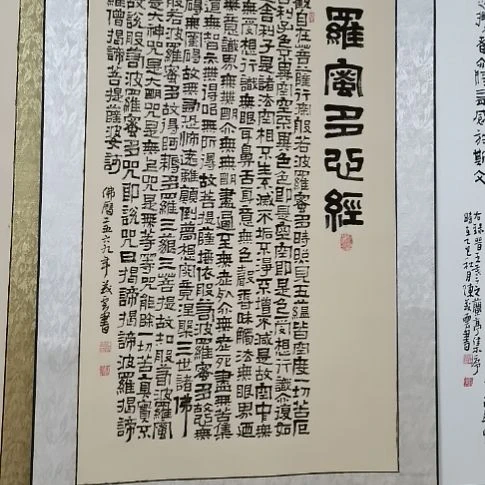 羅蜜多心經
觀自在菩薩行深般若波羅蜜多時照見五蘊皆空度一切苦厄
舍利子色不異空空不異色色即是空空即是色受想行識亦復如
舍利子是諸法空相不生不滅不垢不淨不增不減是故空中無
受想行識無眼耳鼻舌身意無色聲香味觸法無眼界乃
意識界無無明亦無無明盡乃至無老死亦無老死盡無苦集
道無智亦無得以無所得故菩提薩埵依般若波羅蜜多故心無
礙無罣礙故無有恐怖遠離顛倒夢想究竟涅槃三世諸佛
般若波羅蜜多故得阿耨多羅三藐三菩提故知般若波羅蜜
是大神咒是大明咒是無上咒是無等等咒能除一切苦真實不
故說般若波羅蜜多咒即說咒曰揭諦揭諦波羅揭諦
羅僧揭諦菩提薩婆訶
佛曆二五六九年義雲書
感於斯文
右錄晉王羲之蘭亭集序
時在乙巳 月陳義雲書